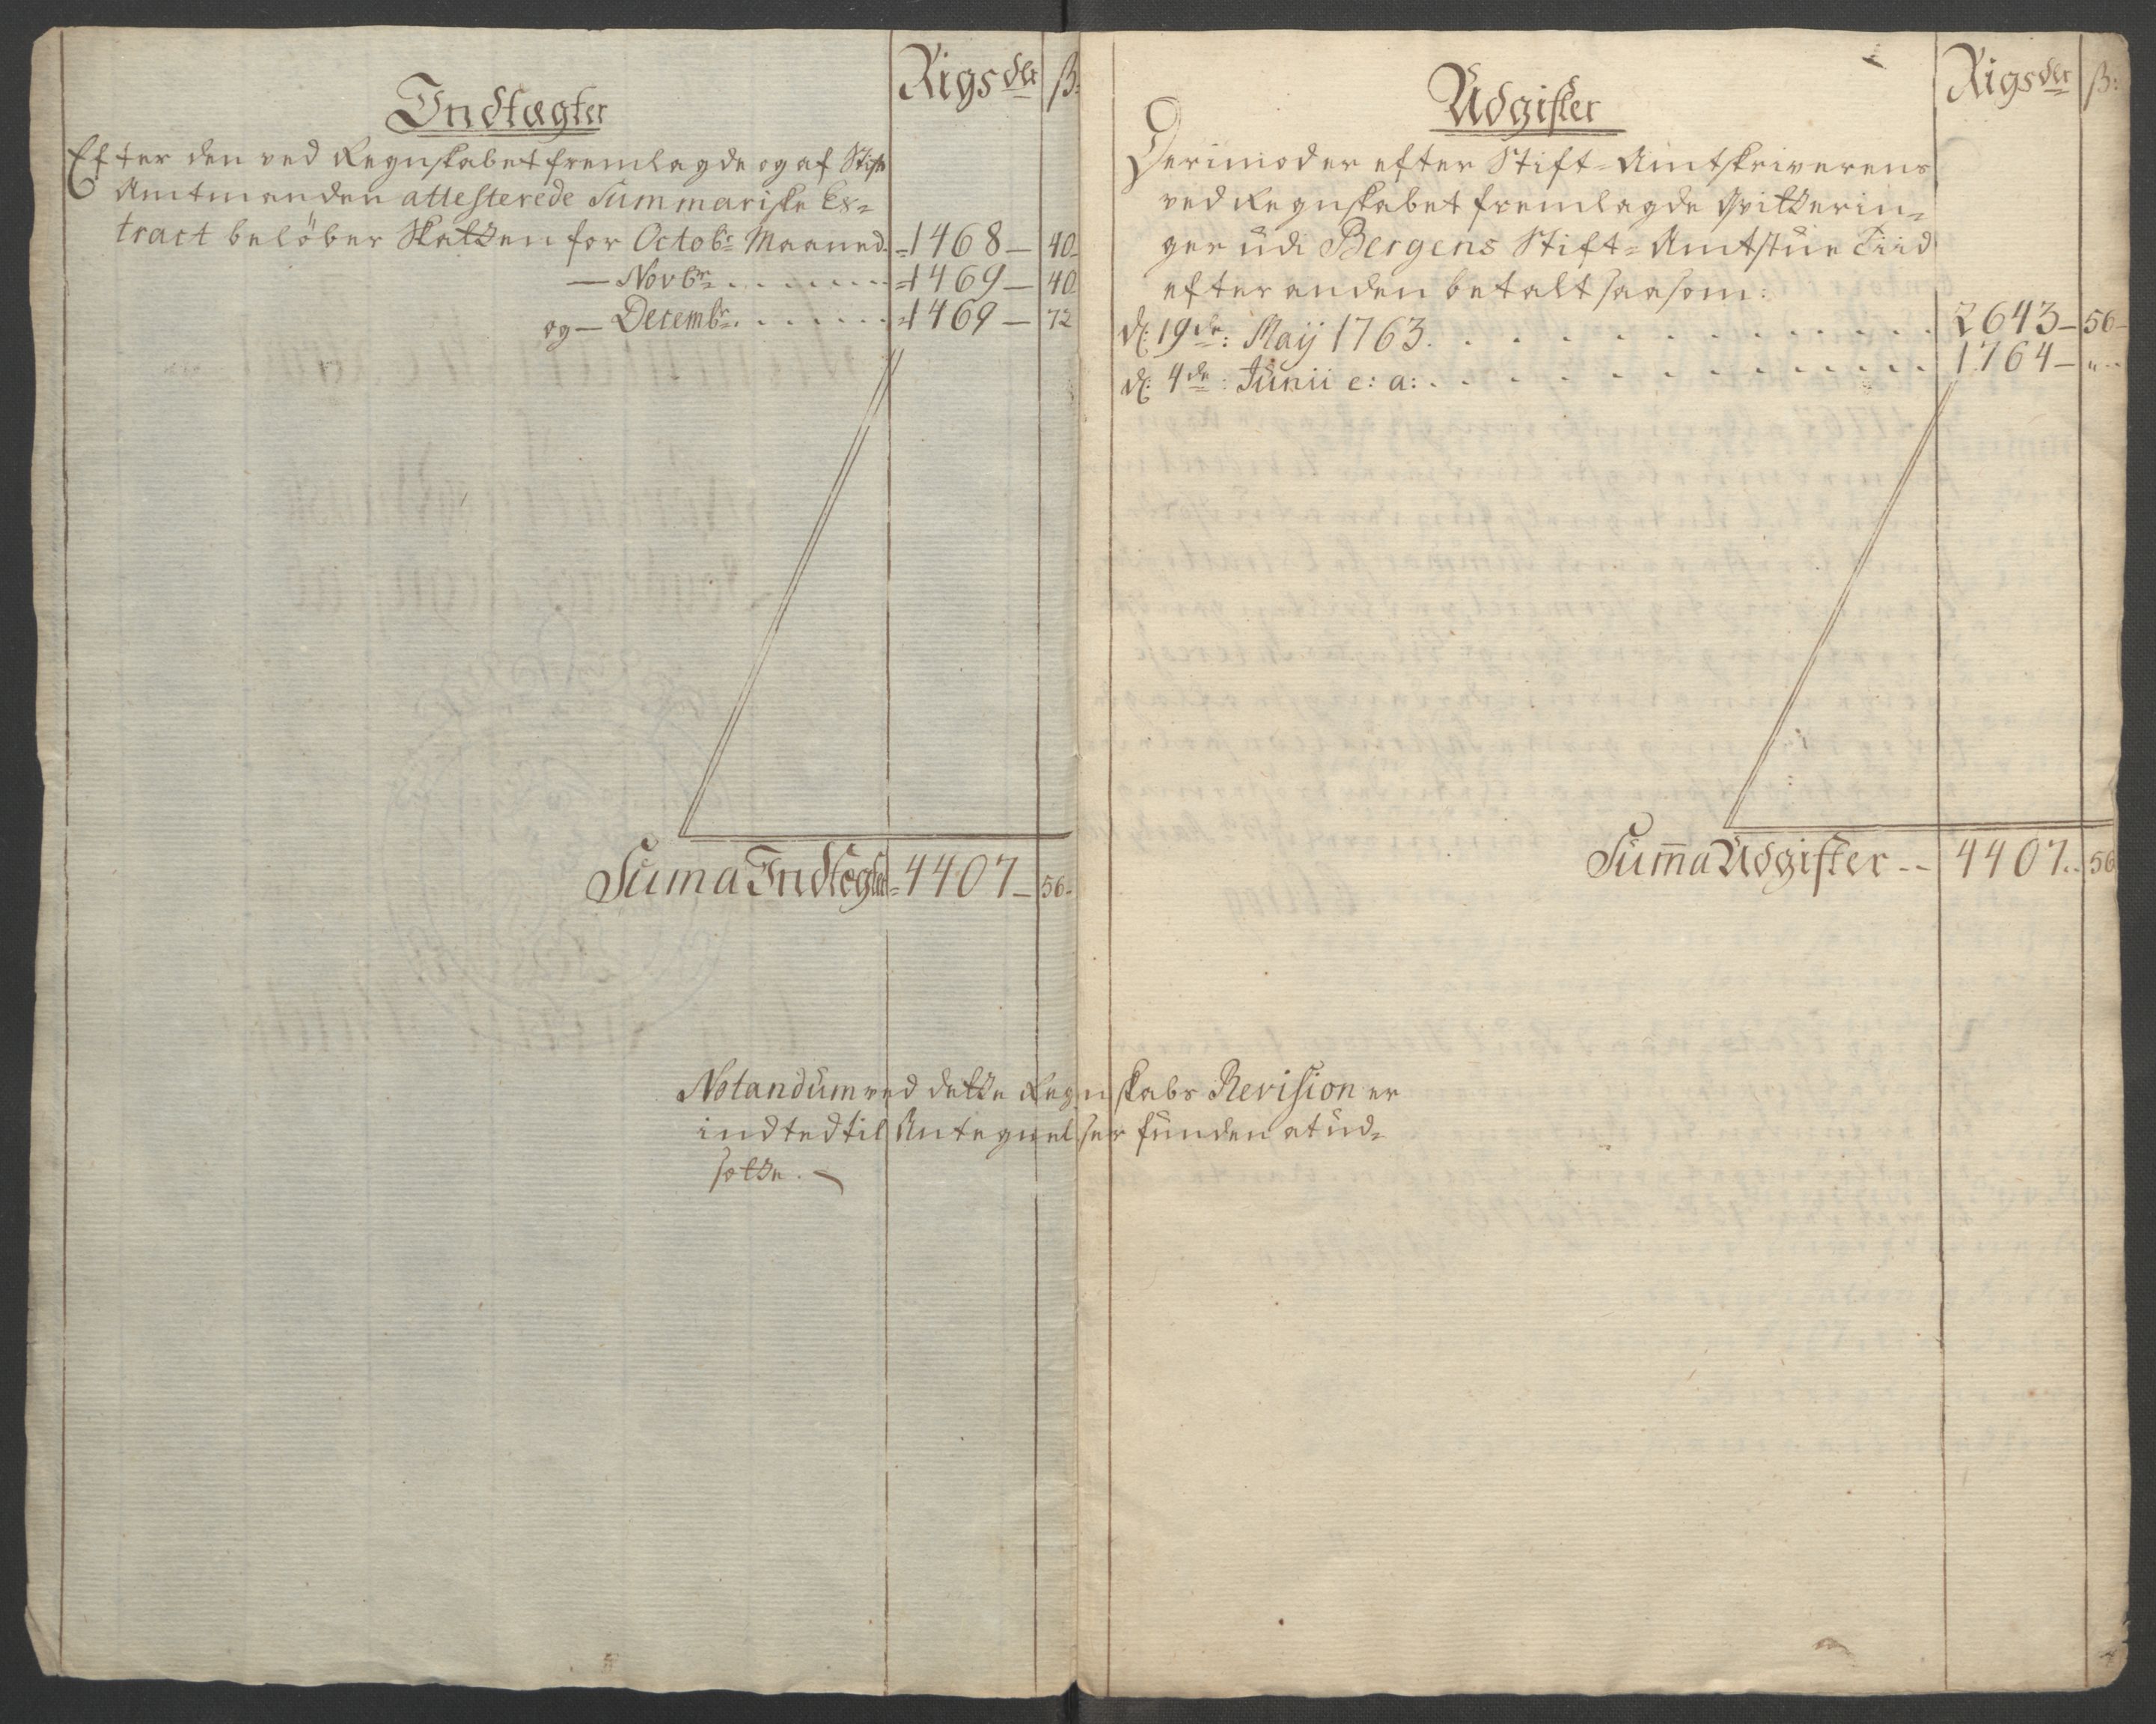 Rigsdlr ß:
Indtægter
Efter den ved Regnskabet fremlagde og af Stift
Amtmanden attesterede Summariske Ex=
tract beløber Skatten for Octobr Maaned. 1468 – 40
— Novbr. . . . . . . . 1469 – 40
og — Decembr. . . . . . . 1469 – 72
Suma Indtægter 4407 – 56.
Rigsdlr ß:
Udgifter
Derimod er efter Stift=Amtskriverens
ved Regnskabet fremlagde Qvitterin=
ger udi Bergens Stift=Amtstue Tiid
efter anden betalt saasom:
d: 19de: Maij 1763. . . . . . . . . . . 2643 – 56 –
d: 4de: Junii e: a: . . . . . . . . . . . 1764 – „ –
Summa Udgifter -- 4407 .. 56
Notandum ved dette Regnskabs Revision er
indted til Antegnelser funden at ud=
sætte. –